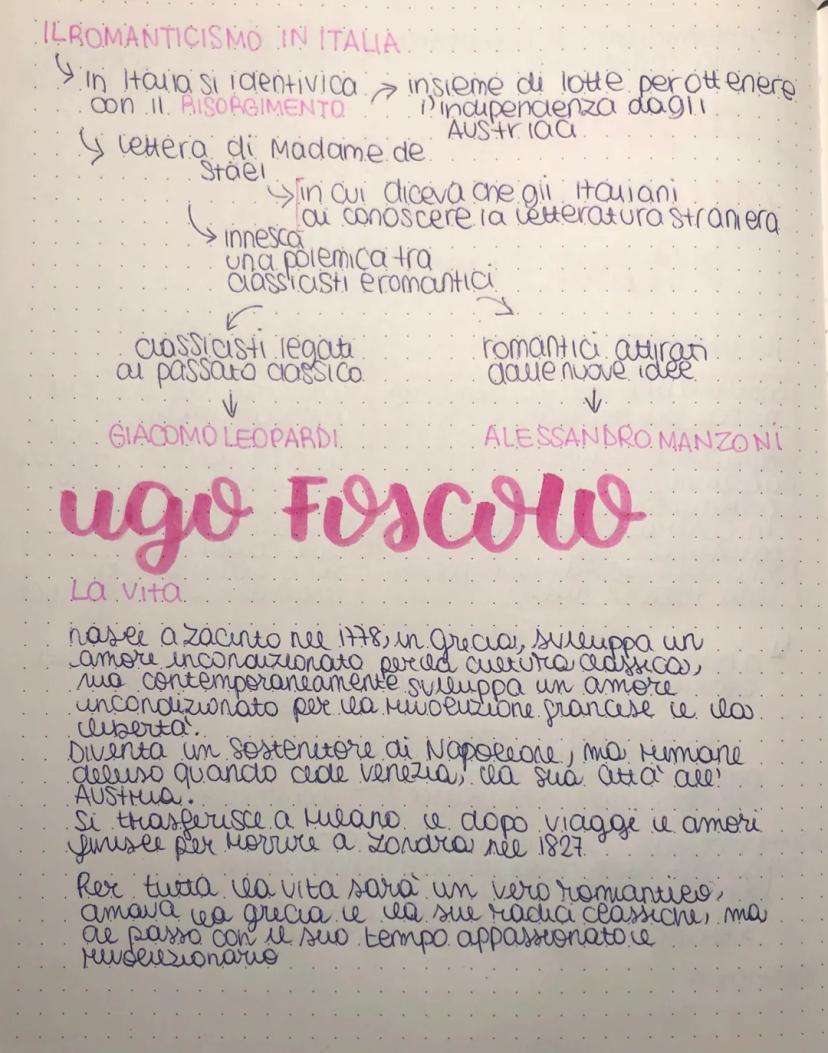 IL ROMANTICISMO IN ITALIA
↳ in Italia si identivica → insieme di lotte per ottenere
con il RISORGIMENTO l'indipendenza dagli
Austriaci
↳ lettera di Madame de
Stael
↳ in cui diceva che gli italiani
di conoscere la letteratura straniera
↳ innesca
una polemica tra
classicisti e romantici
↙ ↘
classicisti legati romantici attirati
al passato classico dalle nuove idee
↓ ↓
GIACOMO LEOPARDI ALESSANDRO MANZONI
ugo Foscolo
La vita
nasce a Zacinto nel 1778, in grecia, sviluppa un
amore incondizionato per la cultura classica,
ma contemporaneamente sviluppa un amore
incondizionato per la rivoluzione francese e la
libertà.
Diventa un sostenitore di Napoleone, ma rimane
deluso quando cede Venezia, la sua città all'
Austria.
Si trasferisce a Milano e dopo viaggi e amori
finisce per morire a Londra nel 1827
Per tutta la vita sarà un vero romantico,
amava la grecia e la sue radici classiche, ma
al passo con il suo tempo appassionato e
rivoluzionario